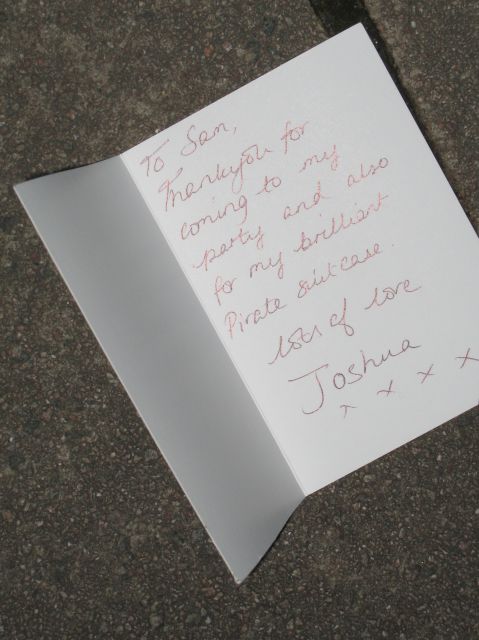 To Sam,
Thankyou for
coming to my
party and also
for my brilliant
Pirate suitcase.
lots of love
Joshua
x x x x